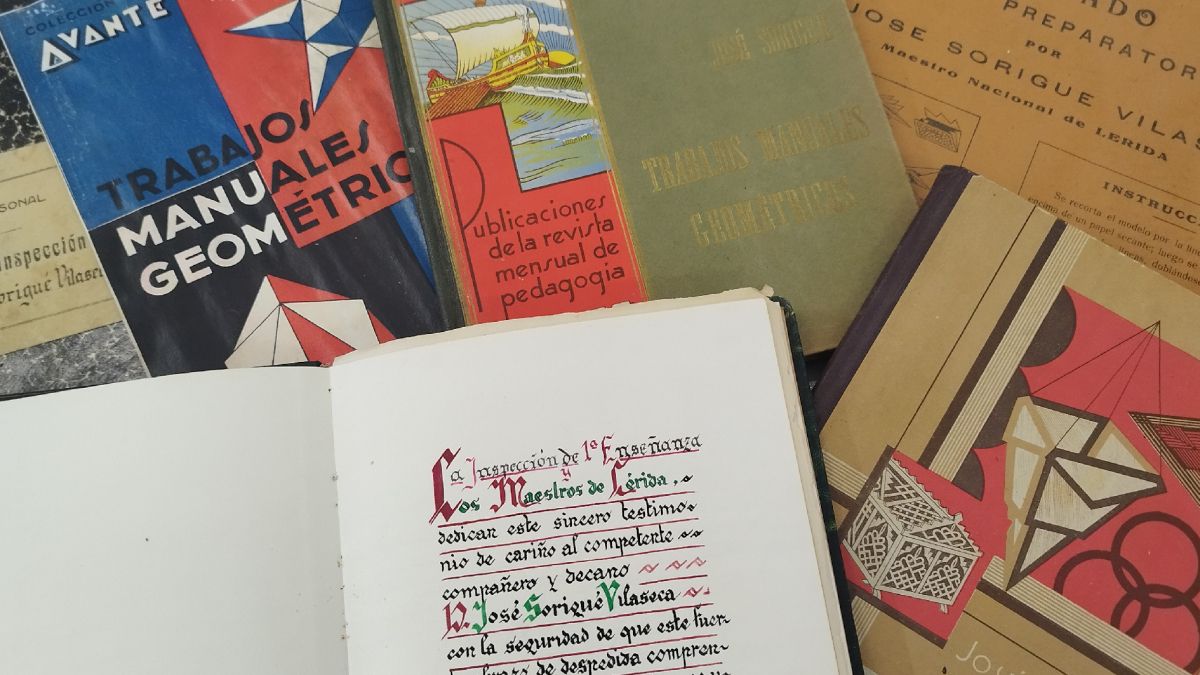 COLECCIÓN
AVANTE
TRABAJOS
MANUALES
GEOMÉTRIC
SONAL
Inspección
origué Vilasec
Publicaciones
de la revista
mensual de
pedagogia
JOSÉ SORIGUÉ
TRABAJOS MANUALES
GEOMÉTRICOS
ADO
PREPARATOR
POR
JOSE SORIGUE VILAS
Maestro Nacional de LERIDA
INSTRUCC
Se recorta el modelo por la
encima de un papel secante; luego se
doblándose
La Inspección de 1ª Enseñanza
y
Los Maestros de Lérida,
dedican este sincero testimo-
nio de cariño al competente
compañero y decano
D. José Sorigué Vilaseca
con la seguridad de que este fuer-
de despedida compren-
JOSÉ